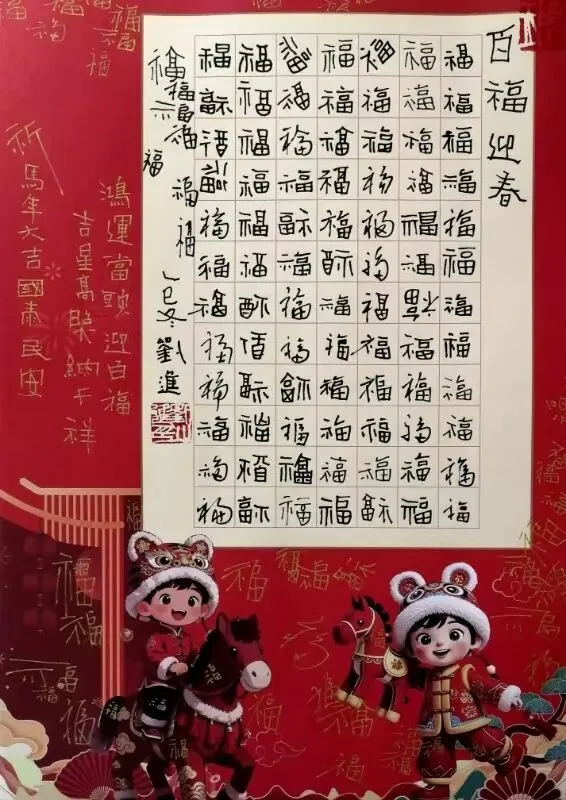 百福迎春
福福福福福福福福福福福福
福福福福福福福福福福福福
福福福福福福福福福福福福
福福福福福福福福福福福福
福福福福福福福福福福福福
福福福福福福福福福福福福
福福福福福福福福福福福福
福福福福福福福
乙巳冬劉進
鴻運當頭迎百福
吉星高照納千祥
祈馬年大吉國泰民安
福
福
福
福
福
福
福
福